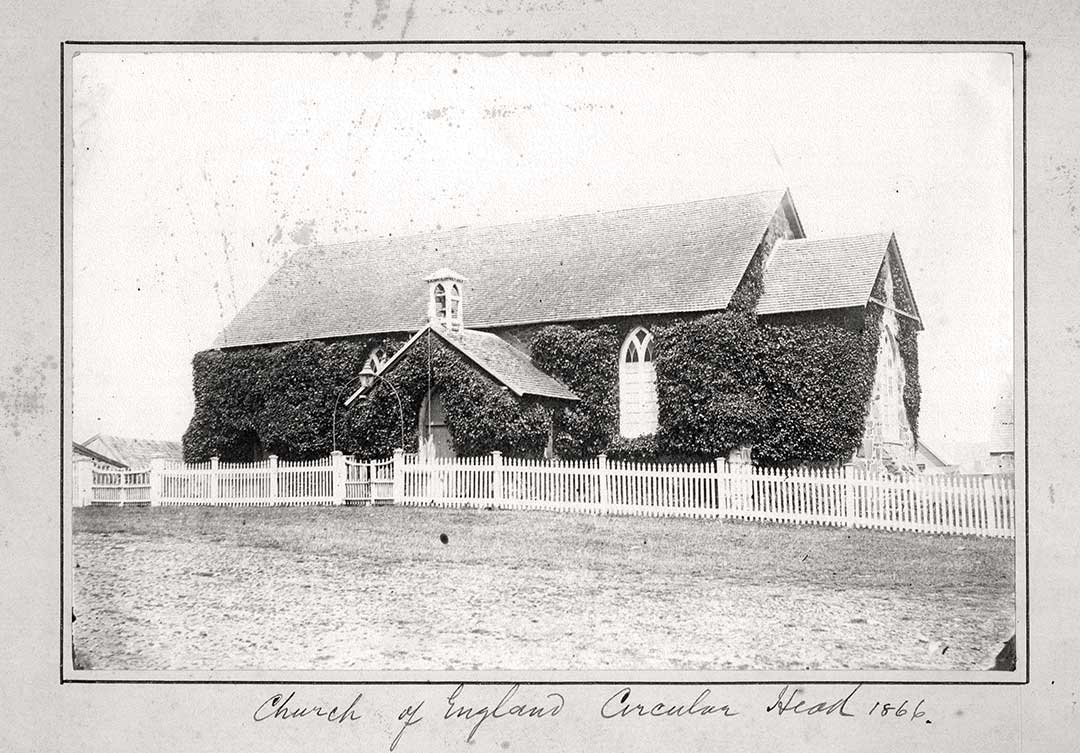 Church of England Circular Head 1866.